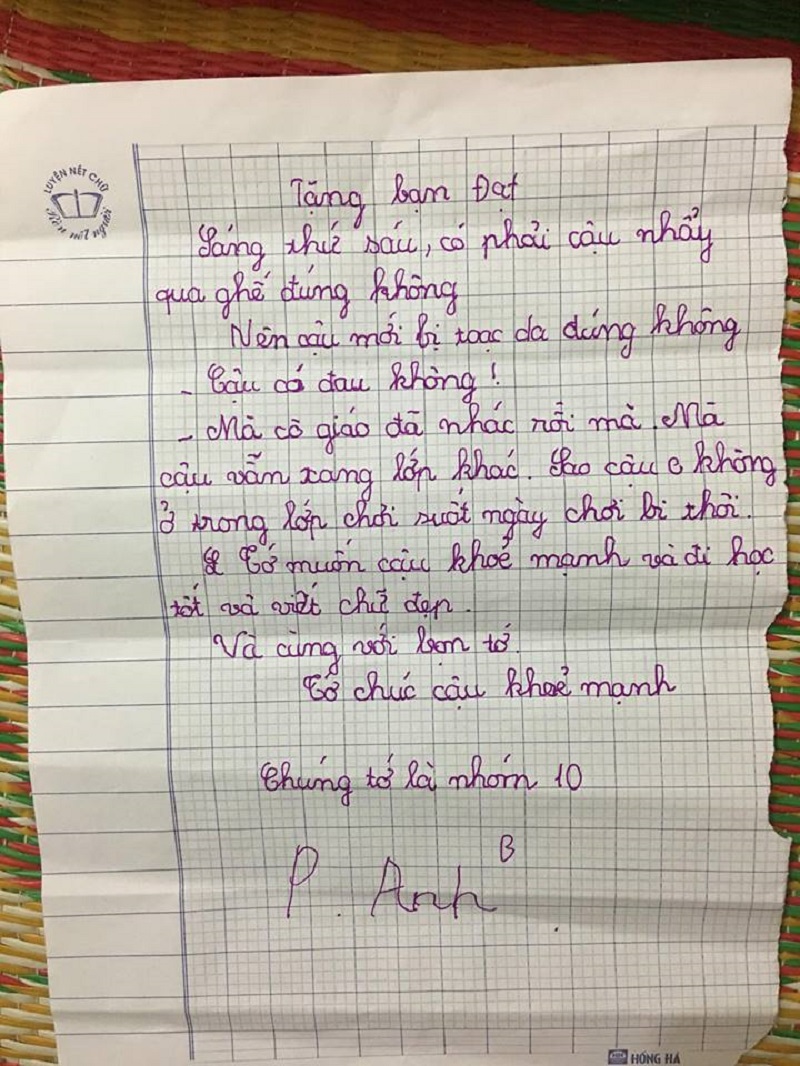 LUYỆN NÉT CHỮ
Rèn nết người
Tặng bạn Đạt
Sáng thứ sáu, có phải cậu nhẩy
qua ghế đúng không
Nên cậu mới bị toạc da đúng không
- Cậu có đau không !
- Mà cô giáo đã nhác rồi mà. Mà
cậu vẫn xang lớp khác. Sao cậu không
ở trong lớp chơi suốt ngày chơi bi thôi.
Tớ muốn cậu khoẻ mạnh và đi học
tốt và viết chữ đẹp.
Và cùng với bọn tớ.
Tớ chúc cậu khoẻ mạnh
Chúng tớ là nhóm 10
P. Anh B
HỒNG HÀ